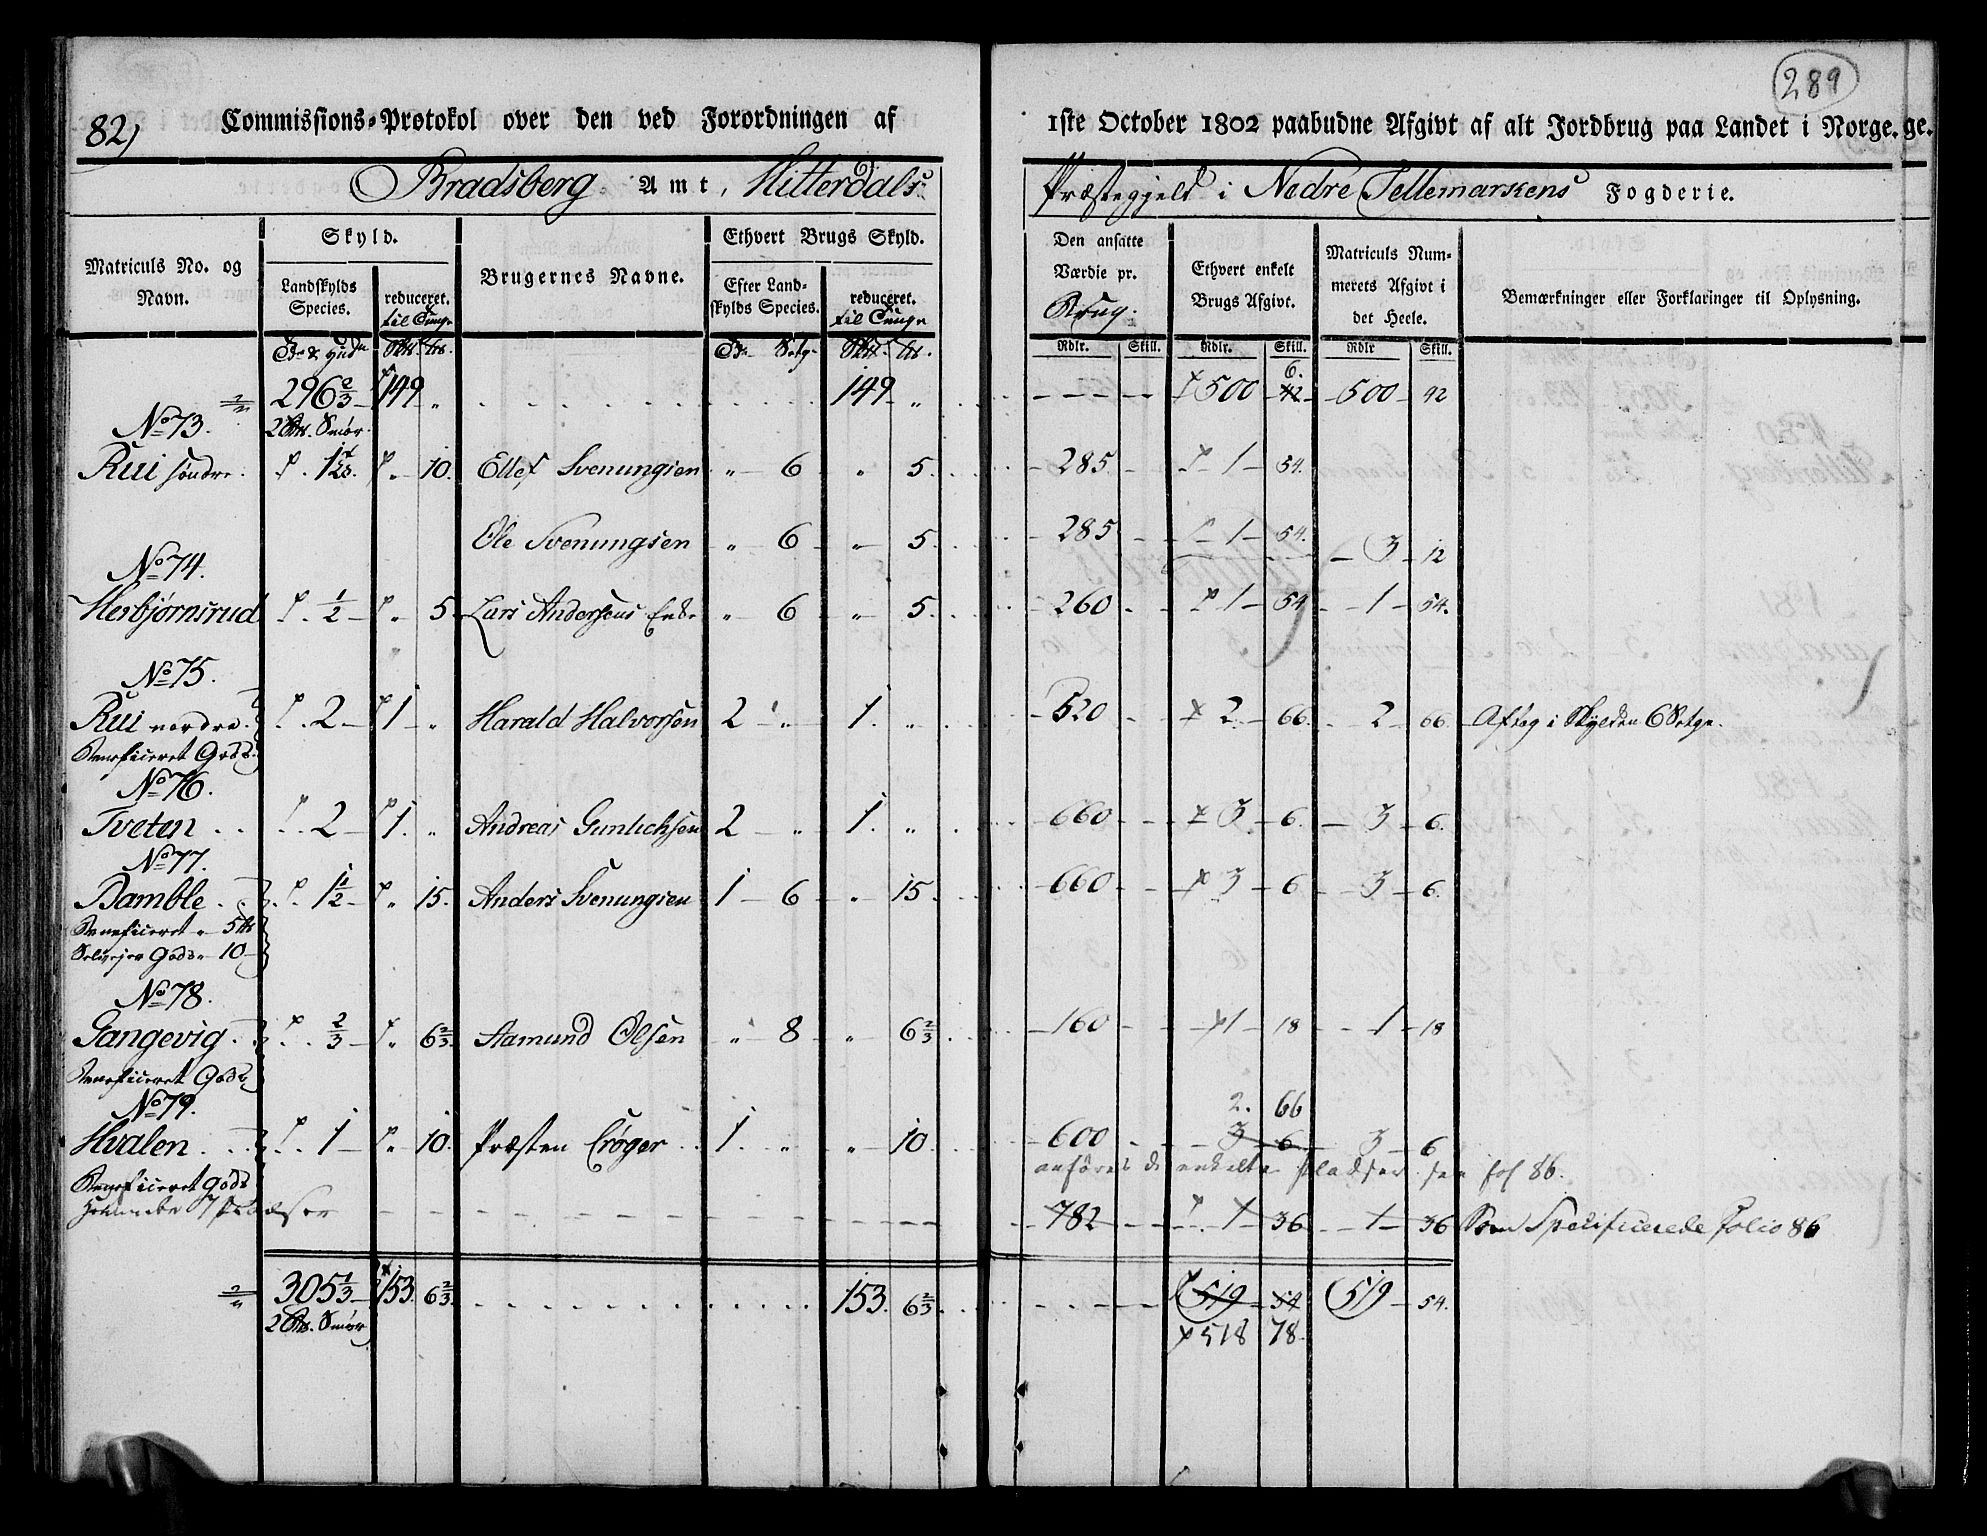 82) Commissions-Protokol over den ved Forordningen af 1ste October 1802 paabudne Afgivt af alt Jordbrug paa Landet i Norge. ge.
289
Bradsberg Amt, Hitterdals Præstegjeld i Nedre Tellemarkens Fogderie.
Matriculs No. og Navn.
Skyld.
Landskylds Species.
reduceret. til Tunge
Brugernes Navne.
Ethvert Brugs Skyld.
Efter Landskylds Species.
reduceret. til Tunge
Den ansatte Værdie pr. Brug.
Ethvert enkelt Brugs Afgivt.
Matriculs Nummerets Afgivt i det Heele.
Bemærkninger eller Forklaringer til Oplysning.
Rdlr. Skill. Rdlr. Skill. Rdlr Skill.
296 2/3 149 „ 149 „ 500 6. 42 500 42
2 Smør.
No 73.
Rui søndre. 1 10. Ellef Svenungsen „ 6 „ 5. 285 1 54.
Ole Svenungsen „ 6 „ 5. 285 1 54. 3 12
No 74.
Herbjørnsrud 1/2 „ 5 Lars Andersens Enke „ 6 „ 5. 260 1 54 1 54.
No 75.
Rui nordre. 2 1 „ Harald Halvorsen 2 „ 1. „ 520 2 66. 2 66. Aftag i Skylden 6 Setge.
Beneficeret Gods.
No 76.
Tveten 2 1. „ Andreas Gunlichsen 2 „ 1. „ 660 3 6. 3 6.
No 77.
Bamble 1 1/2 „ 15. Anders Svenungsen 1 6 „ 15. 660 3 6. 3 6.
Beneficeret 5
Selvejer Gods 10
No 78.
Gangevig 2/3 „ 6 2/3 Aamund Olsen „ 8 „ 6 2/3 160 1 18 1 18
Beneficeret Gods
No 79. 2. 66
Hvalen 1 „ 10. Præsten Crøger 1. „ „ 10 600 3 6 3 6
Beneficeret gods anføres de enkelte pladser see fol 86.
7 Pladser 782 1 36 1 36 Som Specificerede Folio 86
305 1/3 153. 6 2/3 153. 6 2/3 519 54 519 54.
2 Smør 518 78.